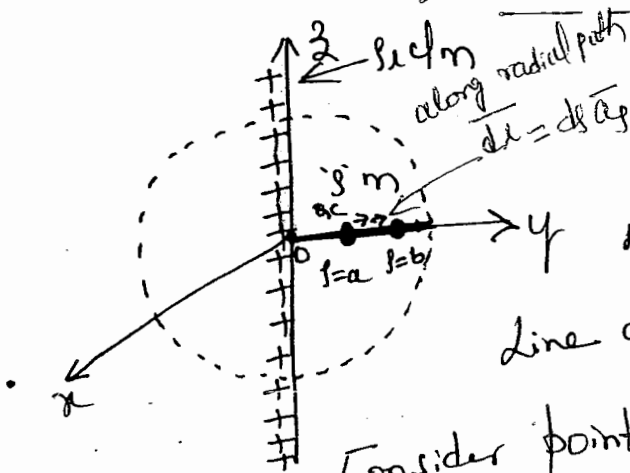 z
ρ_L C/m
along radial path
dl = dρ a̅ρ
ρ m
y
0
ρ=a ρ=b
x
Line
Consider point